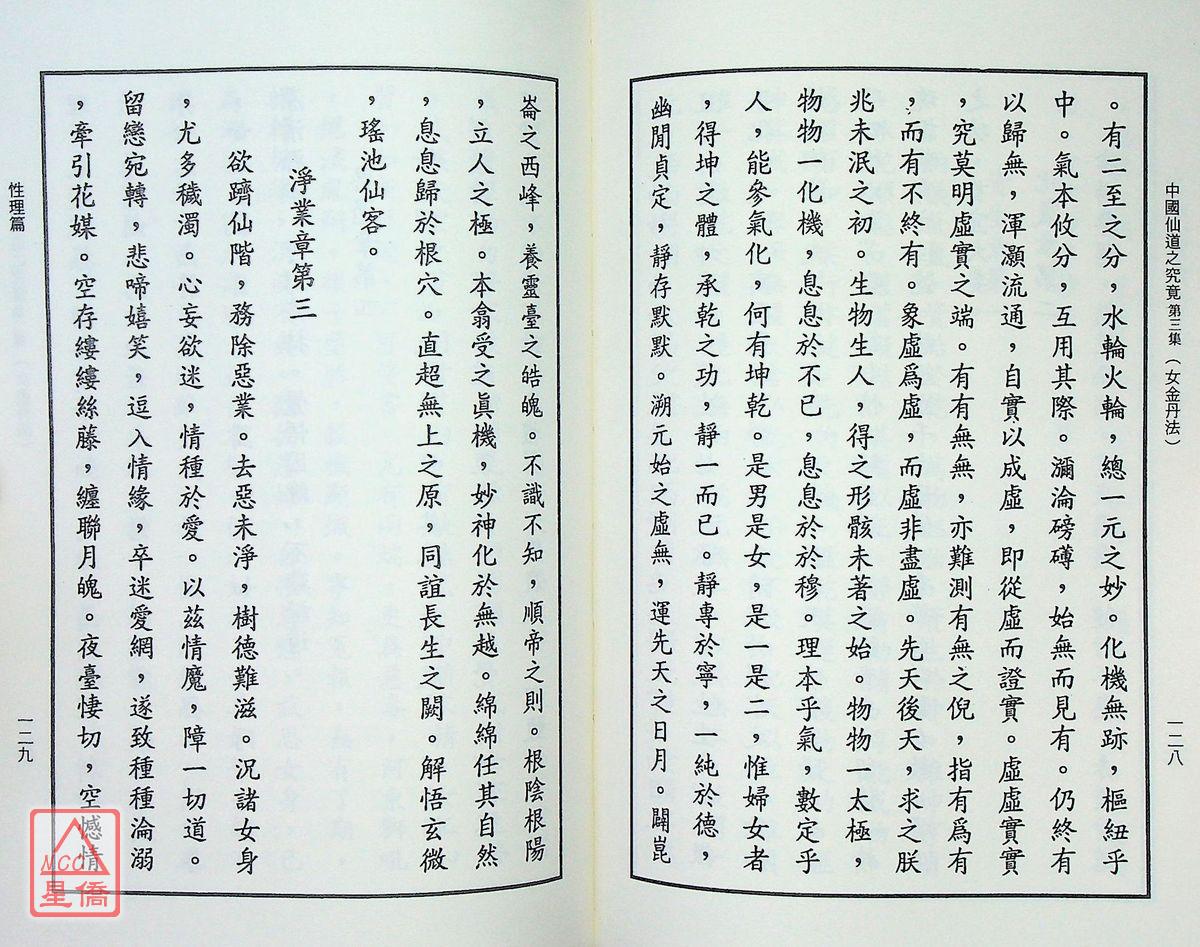 中國仙道之究竟 第三集（女金丹法）
一二八
。有二至之分，水輪火輪，總一元之妙。化機無跡，樞紐乎
中。氣本攸分，互用其際。瀰淪磅礡，始無而見有。仍終有
以歸無，渾灝流通，自實以成虛，即從虛而證實。虛虛實實
，究莫明虛實之端。有有無無，亦難測有無之倪，指有爲有
，而有不終有。象虛爲虛，而虛非盡虛。先天後天，求之朕
兆未泯之初。生物生人，得之形骸未著之始。物物一太極，
物物一化機，息息於不已，息息於於穆。理本乎氣，數定乎
人，能參氣化，何有坤乾。是男是女，是一是二，惟婦女者
，得坤之體，承乾之功，靜一而已。靜專於寧，一純於德，
幽閒貞定，靜存默默。溯元始之虛無，運先天之日月。闢崑
崙之西峰，養靈臺之皓魄。不識不知，順帝之則。根陰根陽
，立人之極。本翕受之眞機，妙神化於無越。綿綿任其自然
，息息歸於根穴。直超無上之原，同誼長生之闕。解悟玄微
，瑤池仙客。
淨業章第三
欲躋仙階，務除惡業。去惡未淨，樹德難滋。況諸女身
，尤多穢濁。心妄欲迷，情種於愛。以茲情魔，障一切道。
留戀宛轉，悲啼嬉笑，逗入情緣，卒迷愛網，遂致種種淪溺
，牽引花媒。空存縷縷絲藤，纏聯月魄。夜臺悽切，空憾情
性理篇
一二九
NCC
星僑